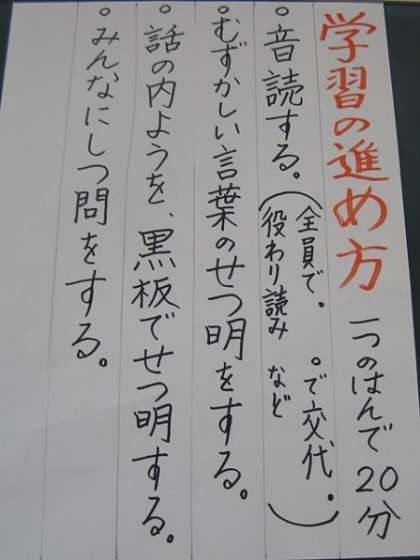 学習の進め方 一つのはんで20分
。音読する。(全員で。 。で交代。
役わり読み など)
。むずかしい言葉のせつ明をする。
。話の内ようを、黒板でせつ明する。
。みんなにしつ問をする。